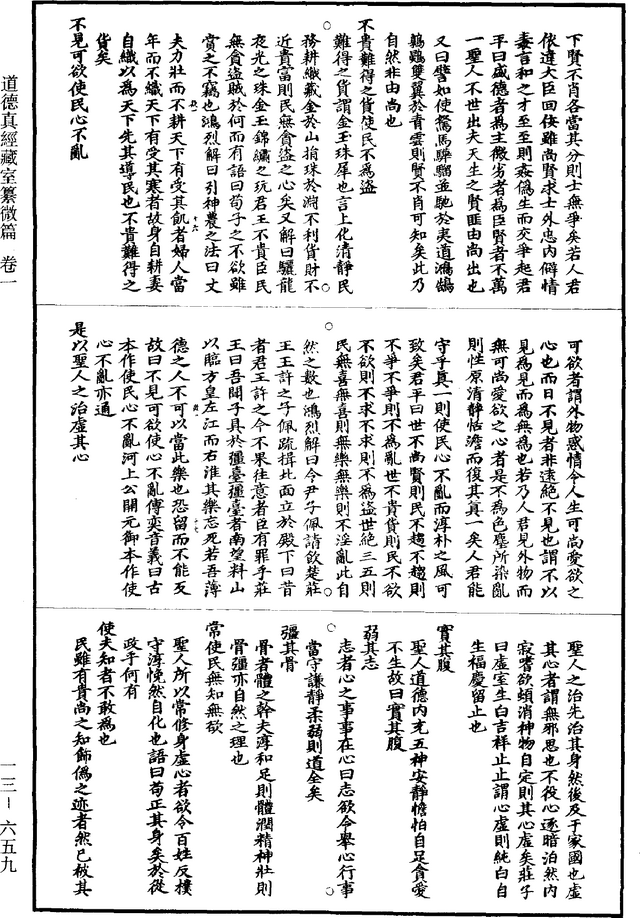 下賢不肖各當其分則士無爭矣若人君
依違大臣回佞雖尚賢求士外忠内僻情
毒言和之才至至則姦偽生而交爭起君
平曰盛德者為主微劣者為臣賢者不萬
一聖人不世出夫天生之賢匪由尚出也
又曰譬如使駑馬騨騮並馳於夷道鴻鵠
鶉鷃雙翼於青雲則賢不肖可知矣此乃
自然非由尚也
不貴難得之貨使民不為盜
難得之貨謂金玉珠犀也言上化清靜民
務耕織藏金於山捐珠於淵不利貨財不
近貴富則民無貪盜之心矣又解曰驪龍
夜光之珠金玉錦繡之玩君王不貴臣民
無貪盜賊於何而有語曰苟子之不欲雖
賞之不竊也鴻烈解曰引神農之法曰丈
夫力壯而不耕天下有受其飢者婦人當
年而不織天下有受其寒者故身自耕妻
自織以為天下先其導民也不貴難得之
貨矣
不見可欲使民心不亂
可欲者謂外物惑情令人生可尚愛欲之
心也而曰不見者非遠絶不見也謂不以
見為見而為無為也若乃人君見外物而
無可尚愛欲之心者是不為色塵所染亂
則性原清靜恬澹而復其真一矣人君能
守乎真一則使民心不亂而淳朴之風可
致矣君平曰世不尚賢則民不趨不趨則
不爭不爭則不為亂世不貴貨則民不欲
不欲則不求不求則不為盜世絶三五則
民無喜無喜則無樂無樂則不淫亂此自
然之數也鴻烈解曰令尹子佩請飲楚莊
王王許之子佩疏揖北面立於殿下曰昔
者君王許之今不果往意者臣有罪乎莊
王曰吾聞子具於彊臺彊臺者南望料山
以臨方皇左江而右淮其樂忘死若吾薄
德之人不可以當此樂也恐留而不能反
故曰不見可欲使心不亂傅奕音義曰古
本作使民心不亂河上公開元御本作使
心不亂亦通
是以聖人之治虛其心
聖人之治先治其身然後及于家國也虛
其心者謂無邪思也不役心逐暗泊然内
寂嗜欲頓消神物自定則其心虛矣莊子
曰虛室生白吉祥止止謂心虛則純白自
生福慶留止也
實其腹
聖人道德内充五神安靜憺怕自足貪愛
不生故曰實其腹
弱其志
志者心之事事在心曰志欲令舉心行事
當守謙靜柔弱則道全矣
彊其骨
骨者體之幹夫淳和足則體潤精神壯則
骨彊亦自然之理也
常使民無知無欲
聖人所以常修身虛心者欲令百姓反樸
守淳恱然自化也語曰苟正其身矣於從
政乎何有
使夫知者不敢為也
民雖有貴尚之知飾偽之迹者然已被其
道德真經藏室纂微篇 卷一
一三-六五九